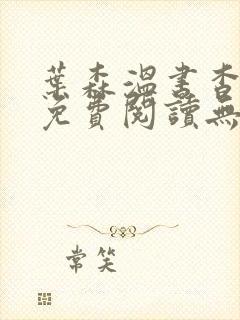 葉森溫書杳
免費閱讀無
常笑